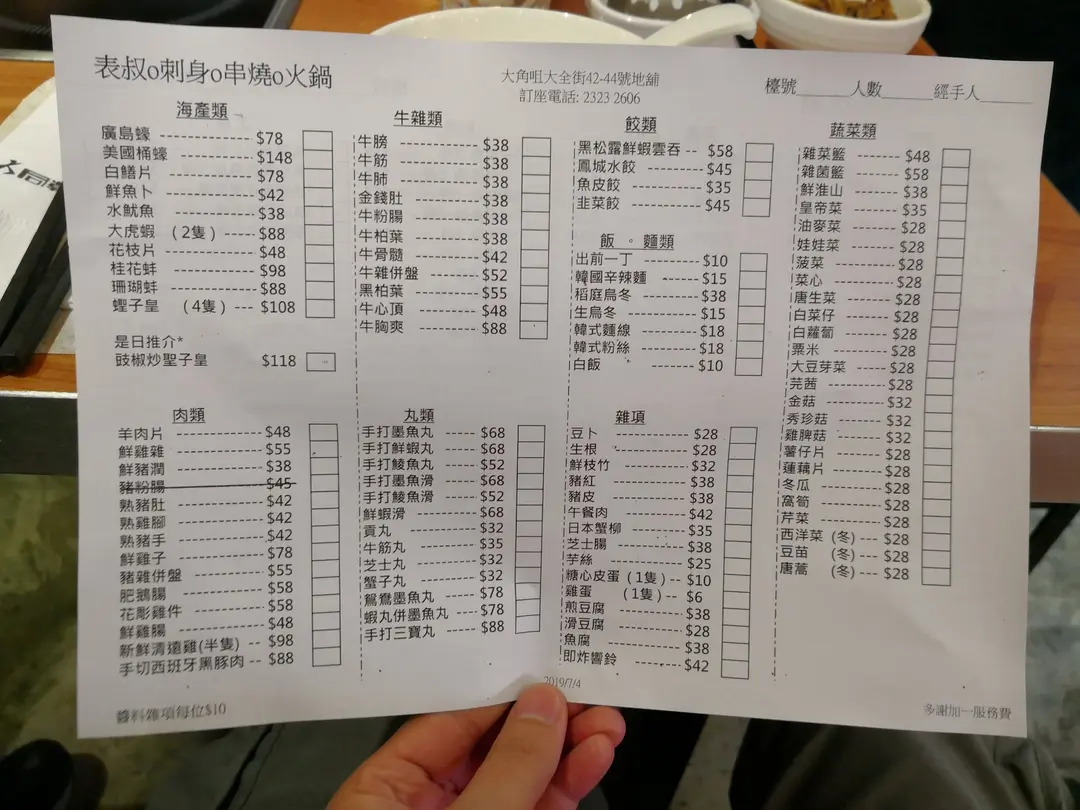 表叔o刺身o串燒o火鍋
大角咀大全街42-44號地舖
訂座電話: 2323 2606
檯號______人數______經手人______
海產類
廣島蠔 $78
美國桶蠔 $148
白鱔片 $78
鮮魚卜 $42
水魷魚 $38
大虎蝦 (2隻) $88
花枝片 $48
桂花蚌 $98
珊瑚蚌 $88
蟶子皇 (4隻) $108
是日推介*
豉椒炒聖子皇 $118
肉類
羊肉片 $48
鮮雞雜 $55
鮮豬潤 $38
豬粉腸 $45
熟豬肚 $42
熟雞腳 $42
熟豬手 $42
鮮雞子 $78
豬雜併盤 $55
肥鵝腸 $58
花彫雞件 $58
鮮雞腸 $48
新鮮清遠雞(半隻) $98
手切西班牙黑豚肉 $88
牛雜類
牛膀 $38
牛筋 $38
牛肺 $38
金錢肚 $38
牛粉腸 $38
牛柏葉 $38
牛骨髓 $42
牛雜併盤 $52
黑柏葉 $55
牛心頂 $48
牛胸爽 $88
丸類
手打墨魚丸 $68
手打鮮蝦丸 $68
手打鯪魚丸 $52
手打墨魚滑 $68
手打鯪魚滑 $52
鮮蝦滑 $68
貢丸 $32
牛筋丸 $35
芝士丸 $32
蟹子丸 $32
鴛鴦墨魚丸 $78
蝦丸併墨魚丸 $78
手打三寶丸 $88
餃類
黑松露鮮蝦雲吞 $58
鳳城水餃 $45
魚皮餃 $35
韭菜餃 $45
飯 。 麵類
出前一丁 $10
韓國辛辣麵 $15
稻庭烏冬 $38
生烏冬 $15
韓式麵線 $18
韓式粉絲 $18
白飯 $10
雜項
豆卜 $28
生根 $28
鮮枝竹 $32
豬紅 $38
豬皮 $38
午餐肉 $42
日本蟹柳 $35
芝士腸 $38
芋絲 $25
糖心皮蛋 (1隻) $10
雞蛋 (1隻) $6
煎豆腐 $38
滑豆腐 $28
魚腐 $38
即炸響鈴 $42
蔬菜類
雜菜籃 $48
雜菌籃 $58
鮮淮山 $38
皇帝菜 $35
油麥菜 $28
娃娃菜 $28
菠菜 $28
菜心 $28
唐生菜 $28
白菜仔 $28
白蘿蔔 $28
粟米 $28
大豆芽菜 $28
芫茜 $28
金菇 $32
秀珍菇 $32
雞脾菇 $32
薯仔片 $28
蓮藕片 $28
冬瓜 $28
窩筍 $28
芹菜 $28
西洋菜 (冬) $28
豆苗 (冬) $28
唐蒿 (冬) $28
醬料雜項每位$10
2019/7/4
多謝加一服務費